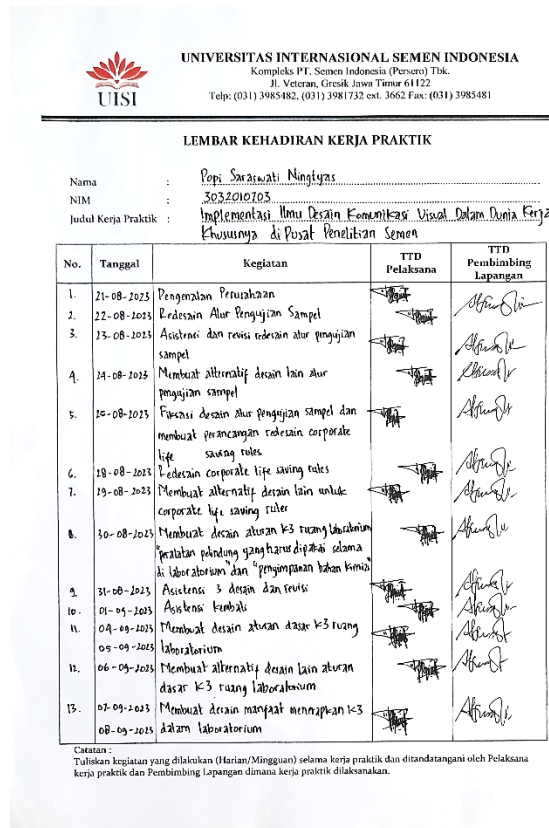 UISI
UNIVERSITAS INTERNASIONAL SEMEN INDONESIA
Kompleks PT. Semen Indonesia (Persero) Tbk.
Jl. Veteran, Gresik Jawa Timur 61122
Telp: (031) 3985482, (031) 3981732 ext. 3662 Fax: (031) 3985481
LEMBAR KEHADIRAN KERJA PRAKTIK
Nama : Popi Saraswati Ningtyas
NIM : 3032010703
Judul Kerja Praktik : Implementasi Ilmu Desain Komunikasi Visual Dalam Dunia Kerja
Khususnya di Pusat Penelitian Semen
No. Tanggal Kegiatan TTD Pelaksana TTD Pembimbing Lapangan
1. 21-08-2023 Pengenalan Perusahaan
2. 22-08-2023 Redesain Alur Pengujian Sampel
3. 23-08-2023 Asistensi dan revisi redesain alur pengujian
sampel
4. 24-08-2023 Membuat alternatif desain lain alur
pengujian sampel
5. 25-08-2023 Fiksasi desain alur pengujian sampel dan
membuat perancangan redesain corporate
life saving rules
6. 28-08-2023 Redesain corporate life saving rules
7. 29-08-2023 Membuat alternatif desain lain untuk
corporate life saving ruler
8. 30-08-2023 Membuat desain aturan K3 ruang laboratorium
"peralatan pelindung yang harus dipakai selama
di laboratorium" dan "pengimpanan bahan kimia"
9 31-08-2023 Asistensi 3 desain dan revisi
10. 01-09-2023 Asistensi kembali
11. 04-09-2023 Membuat desain aturan dasar K3 ruang
05-09-2023 laboratorium
12. 06-09-2023 Membuat alternatif desain lain aturan
dasar K3 ruang laboratorium
13. 07-09-2023 Membuat desain manfaat menerapkan K3
08-09-2023 dalam laboratorium
Catatan :
Tuliskan kegiatan yang dilakukan (Harian/Mingguan) selama kerja praktik dan ditandatangani oleh Pelaksana
kerja praktik dan Pembimbing Lapangan dimana kerja praktik dilaksanakan.